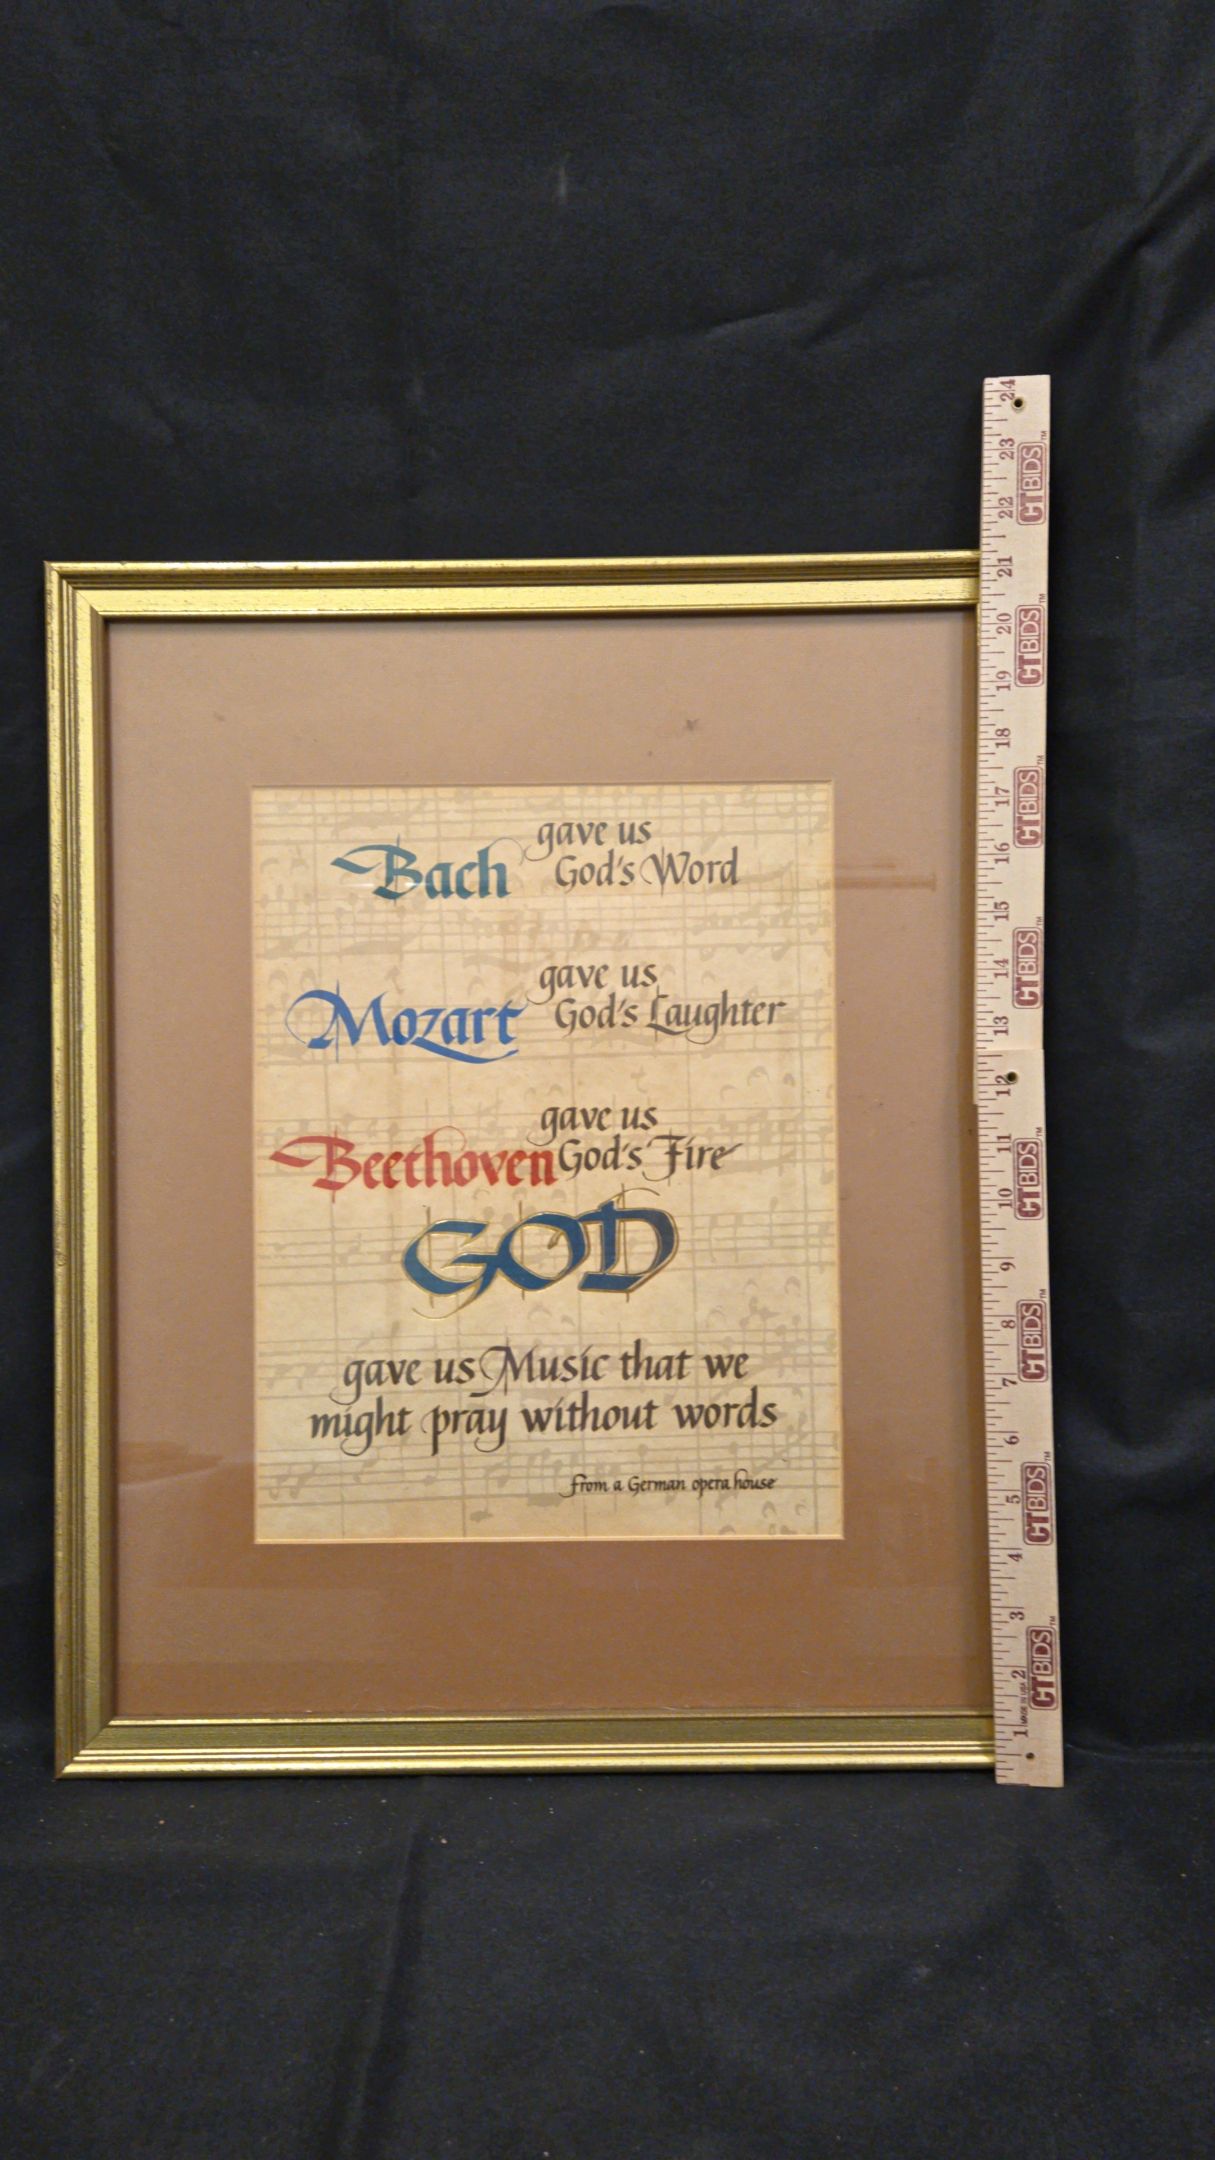 gave us
Bach God's Word
gave us
Mozart God's Laughter
gave us
Beethoven God's Fire
GOD
gave us Music that we
might pray without words
from a German opera house
24
23
CTBIDS™
22
21
20
CTBIDS™
19
18
17
CTBIDS™
16
15
14
CTBIDS™
13
12
11
CTBIDS™
10
9
8
CTBIDS™
7
6
5
CTBIDS™
4
3
2
CTBIDS™
MADE IN USA
1